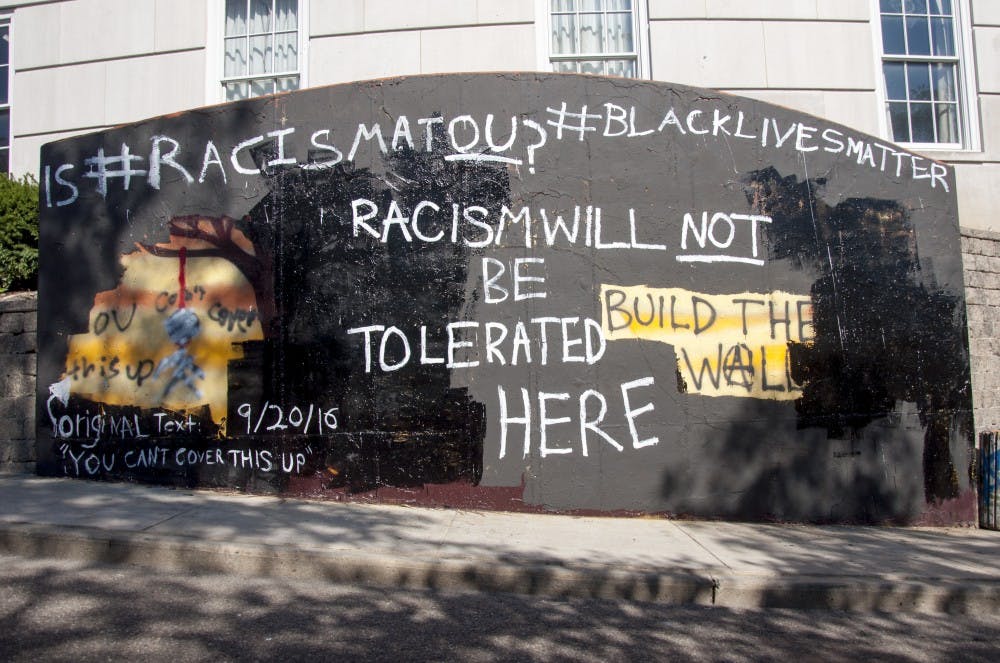 IS #RACISMATOU? ##BLACKLIVESMATTER
RACISM WILL NOT
BE
TOLERATED
HERE
BUILD THE
WALL
OU Can't Cover
this up
Original Text: 9/20/16
"YOU CANT COVER THIS UP"